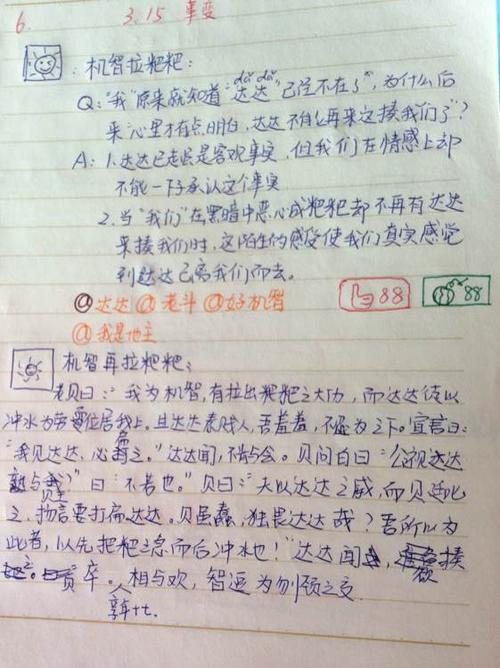 6.
3.15 事变
机智拉粑粑:
dá dá
Q:"我"原来就知道"达达"已经不在了",为什么后
来"心里才有点明白,达达不能再来这接我们了"?
A: 1.达达已走虽是客观事实,但我们在情感上却
不能一下子承认这个事实
2.当"我们"在黑暗中恶心成粑粑却不再有达达
来接我们时,这陌生的感受使我们真实感觉
到达达已离我们而去。
@达达 @老斗 @好机智
88
88
@我是地主
机智再拉粑粑:
贝曰:"我为机智,有拉出粑粑之大功,而达达徒以
冲水为劳 位居我上。且达达素贱人,吾羞羞,不忍为之下。宣言曰:
"我见达达,必扁之。"达达闻,不肯与会。贝问白曰:"公视达达
孰与贝?"曰"不若也。"贝曰:"夫以达达之威,而贝 此
之,扬言要打扁达达。贝虽蠢,独畏达达哉?吾所以为
此者,以先粑粑之急而后冲水也!"达达闻,接
贝。卒相与欢,智逗为刎颈之交